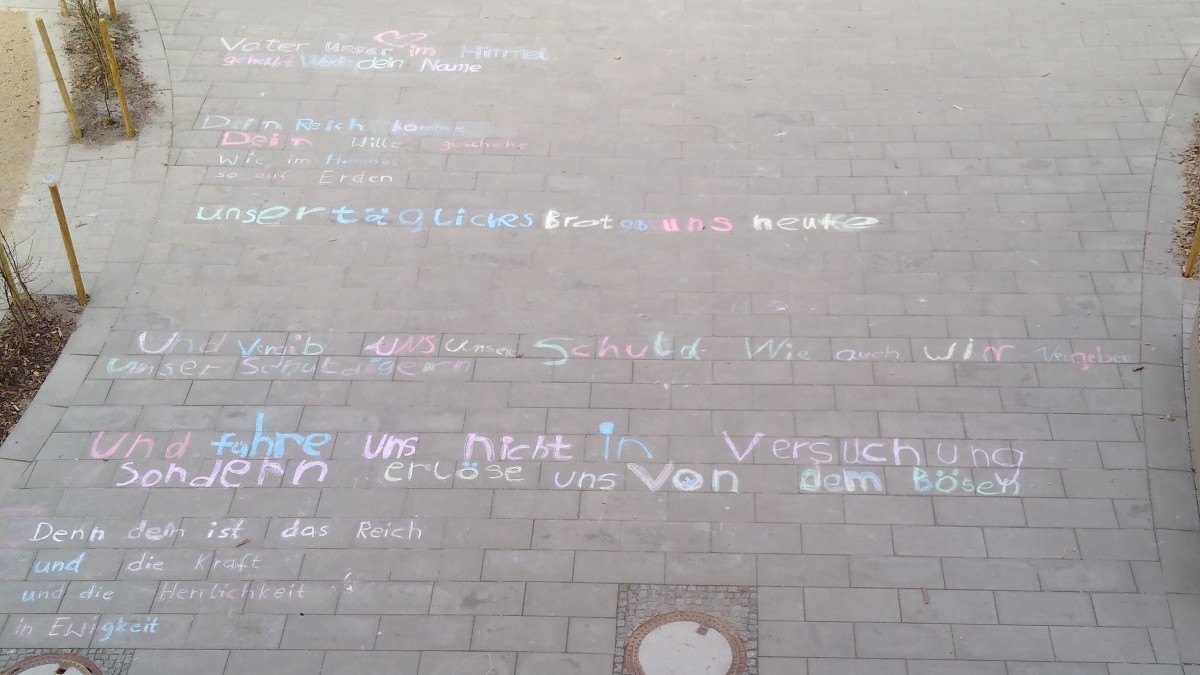 Vater unser im Himmel
geheiligt Werde dein Name
Dein Reich komme
Dein Wille geschehe
Wie im Himmel
so auf Erden
unser tägliches Brot gib uns heute
Und Vergib UNS unsere Schuld Wie auch wir Vergeben
unser Schuldigern
Und fahre uns nicht in Versuchung
Sondern erlöse uns Von dem Bösen
Denn dein ist das Reich
und die Kraft
und die Herrlichkeit
in Ewigkeit